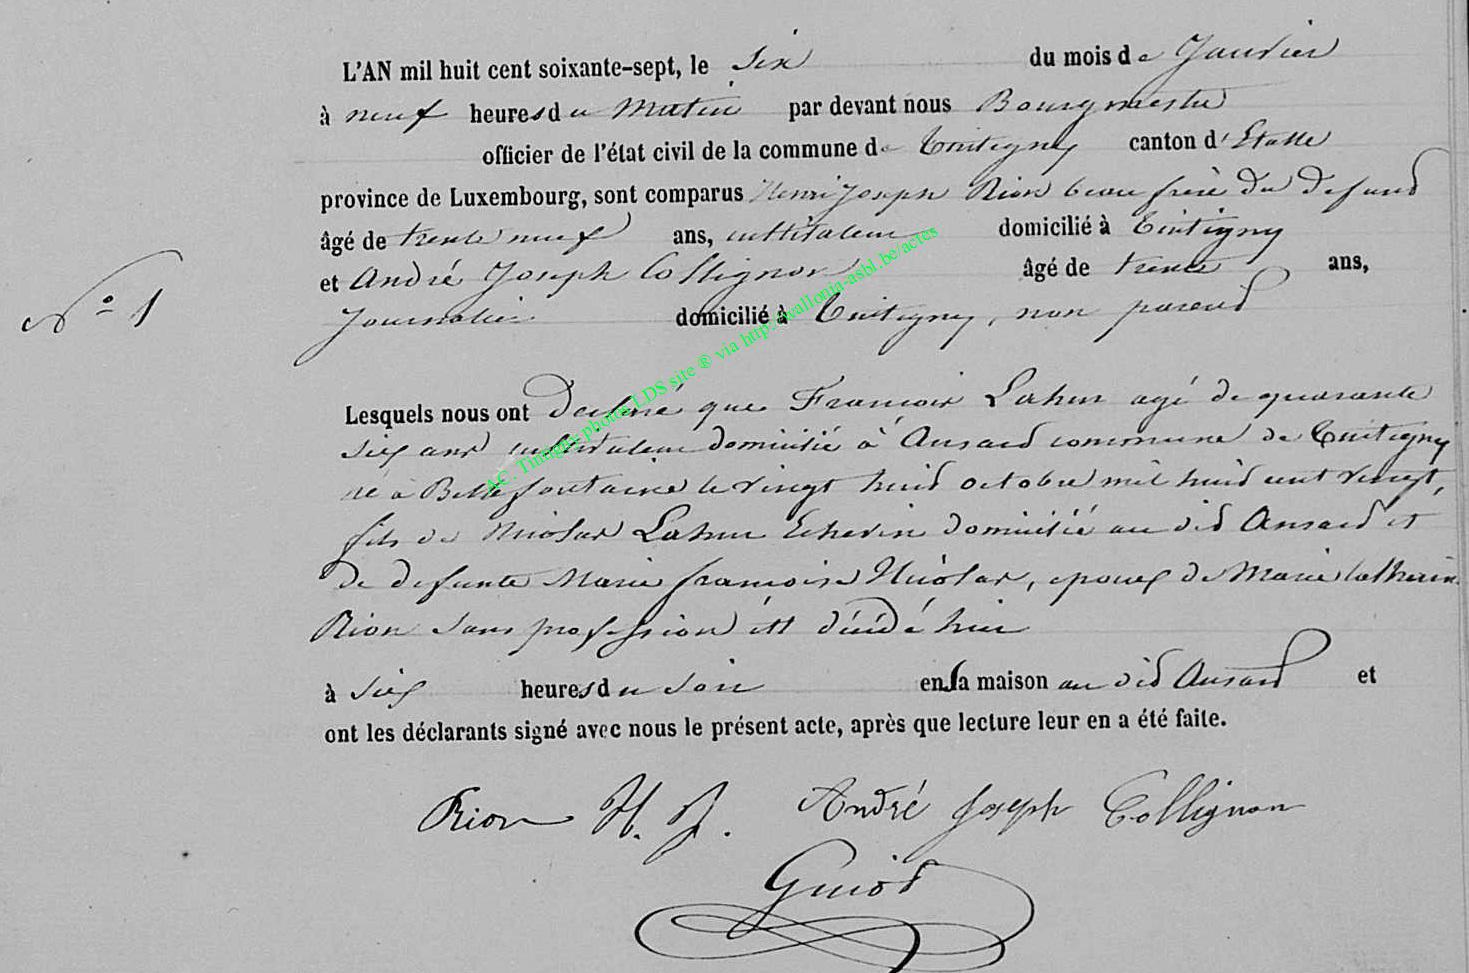 L'AN mil huit cent soixante-sept, le Six du mois de Janvier
à neuf heures du Matin par devant nous Bourgmestre
officier de l'état civil de la commune de Tintigny canton d'Etalle
province de Luxembourg, sont comparus Henri Joseph Rion beau frère du defunt
âgé de trente neuf ans, cultivateur domicilié à Tintigny
et André Joseph Collignon âgé de trente ans,
N° 1
Journalier domicilié à Tintigny, non parent
Lesquels nous ont Declaré que François Lahur agé de quarante
six ans cultivateur domicilié à Ansart commune de Tintigny
né à Bellefontaine le vingt huit octobre mil huit cent vingt,
fils de Nicolas Lahur Echevin domicilié au dit Ansart et
de defunte Marie françoise Nicolas, epoux de Marie Catherine
Rion sans profession est décédé hier
à six heures du soir en sa maison au dit Ansart et
ont les déclarants signé avec nous le présent acte, après que lecture leur en a été faite.
Rion H. J. André Joseph Collignon
Guiot
AC. Tintigny photos LDS site ® via http://wallonia-asbl.be/actes